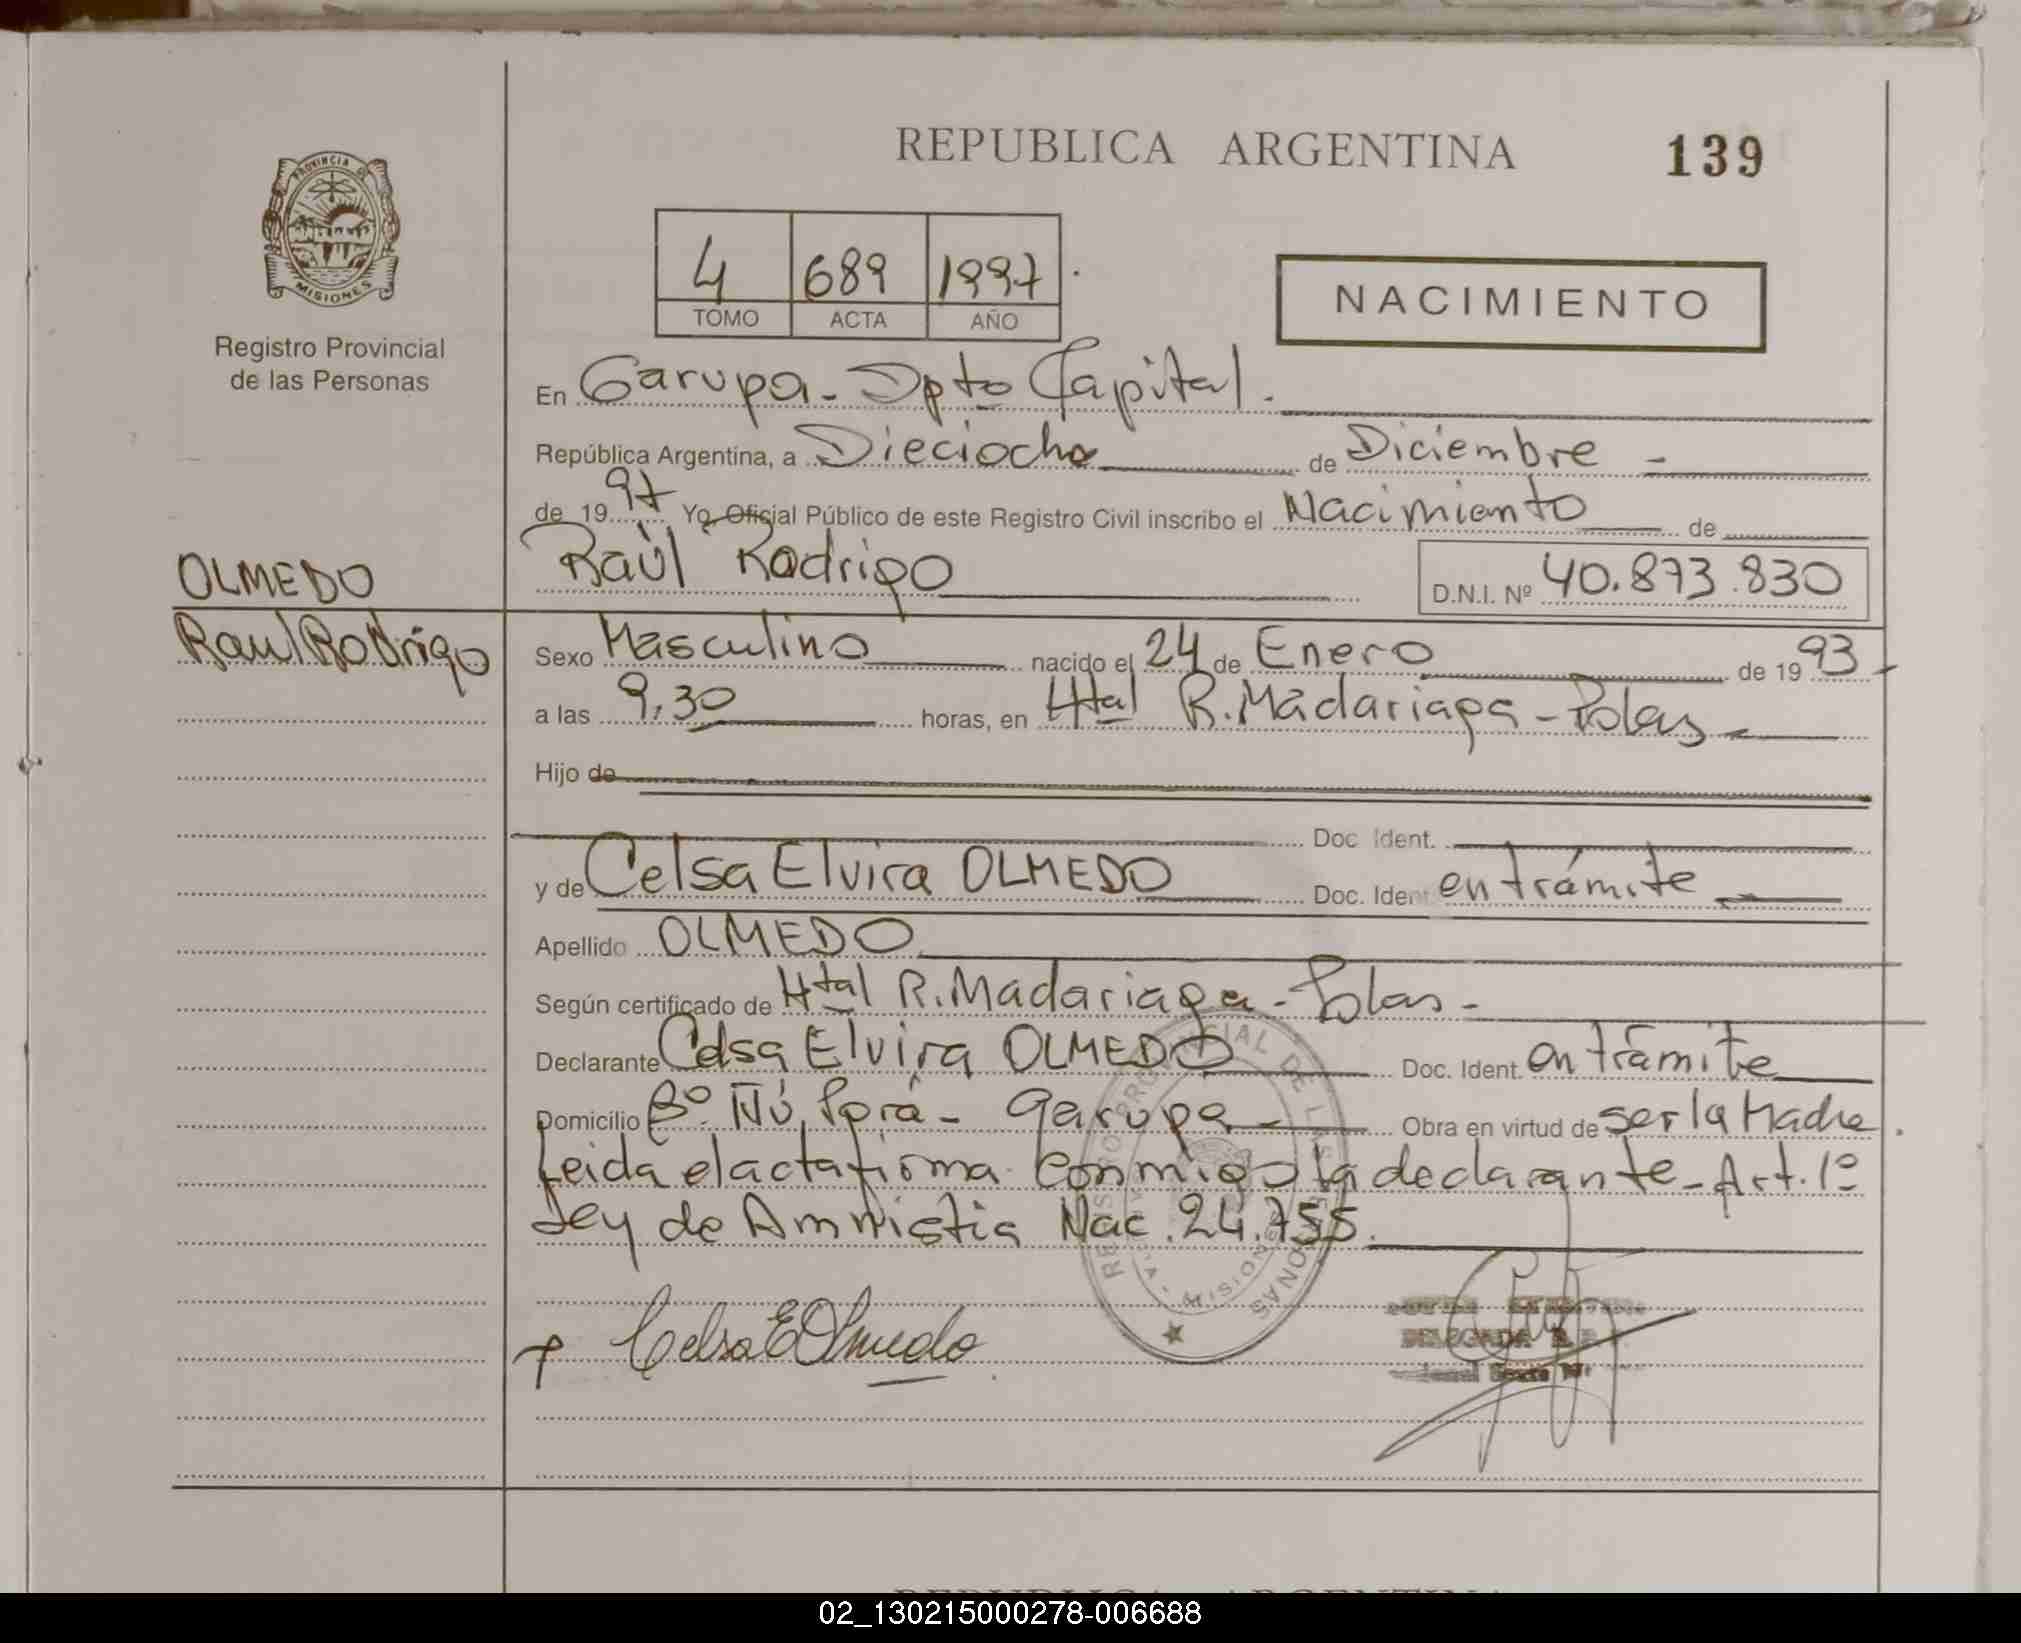 REPUBLICA ARGENTINA 139
PROVINCIA DE
MISIONES
Registro Provincial
de las Personas
4 689 1997
TOMO ACTA AÑO
NACIMIENTO
En Garupa - Dpto Capital.
República Argentina, a Dieciocho de Diciembre -
de 1997 Yo, Oficial Público de este Registro Civil inscribo el Nacimiento de
Raúl Rodrigo D.N.I. Nº 40.873.830
OLMEDO
Raul Rodrigo
Sexo Masculino nacido el 24 de Enero de 1993
a las 9,30 horas, en Htal R. Madariaga - Pdas
Hijo de
Doc. Ident.
y de Celsa Elvira OLMEDO Doc. Ident en trámite
Apellido OLMEDO
Según certificado de Htal R. Madariaga - Pdas -
Declarante Celsa Elvira OLMEDO Doc. Ident. en trámite
Domicilio Bº Ñú Porá - Garupa - Obra en virtud de ser la Madre.
Leida el acta firma conmigo la declarante - Art. 1º
Ley de Amnistia Nac. 24.755.
REGISTRO PROVINCIAL DE LAS PERSONAS
MISIONES
Celsa E Olmedo
DELEGADA
02_130215000278-006688